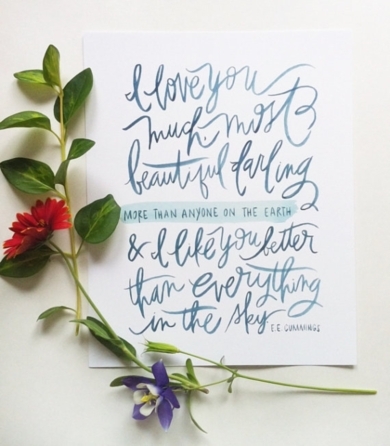 I love you
much most
beautiful darling
MORE THAN ANYONE ON THE EARTH
& I like you better
than everything
in the sky
E.E. CUMMINGS